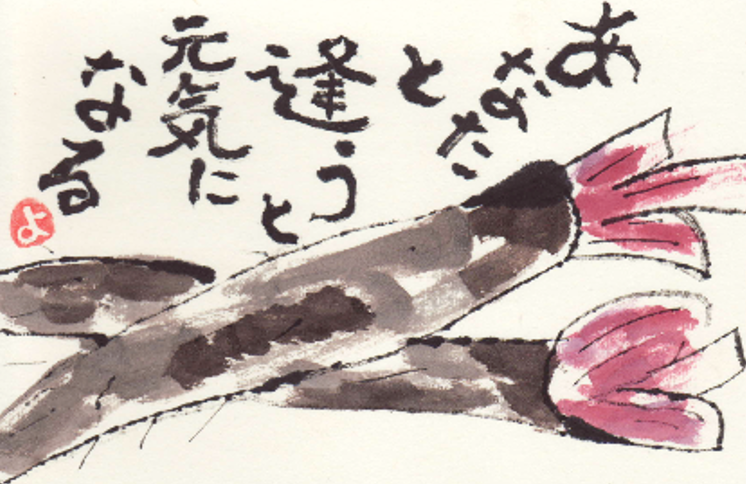 あなた
と
逢うと
元気に
なる
よ